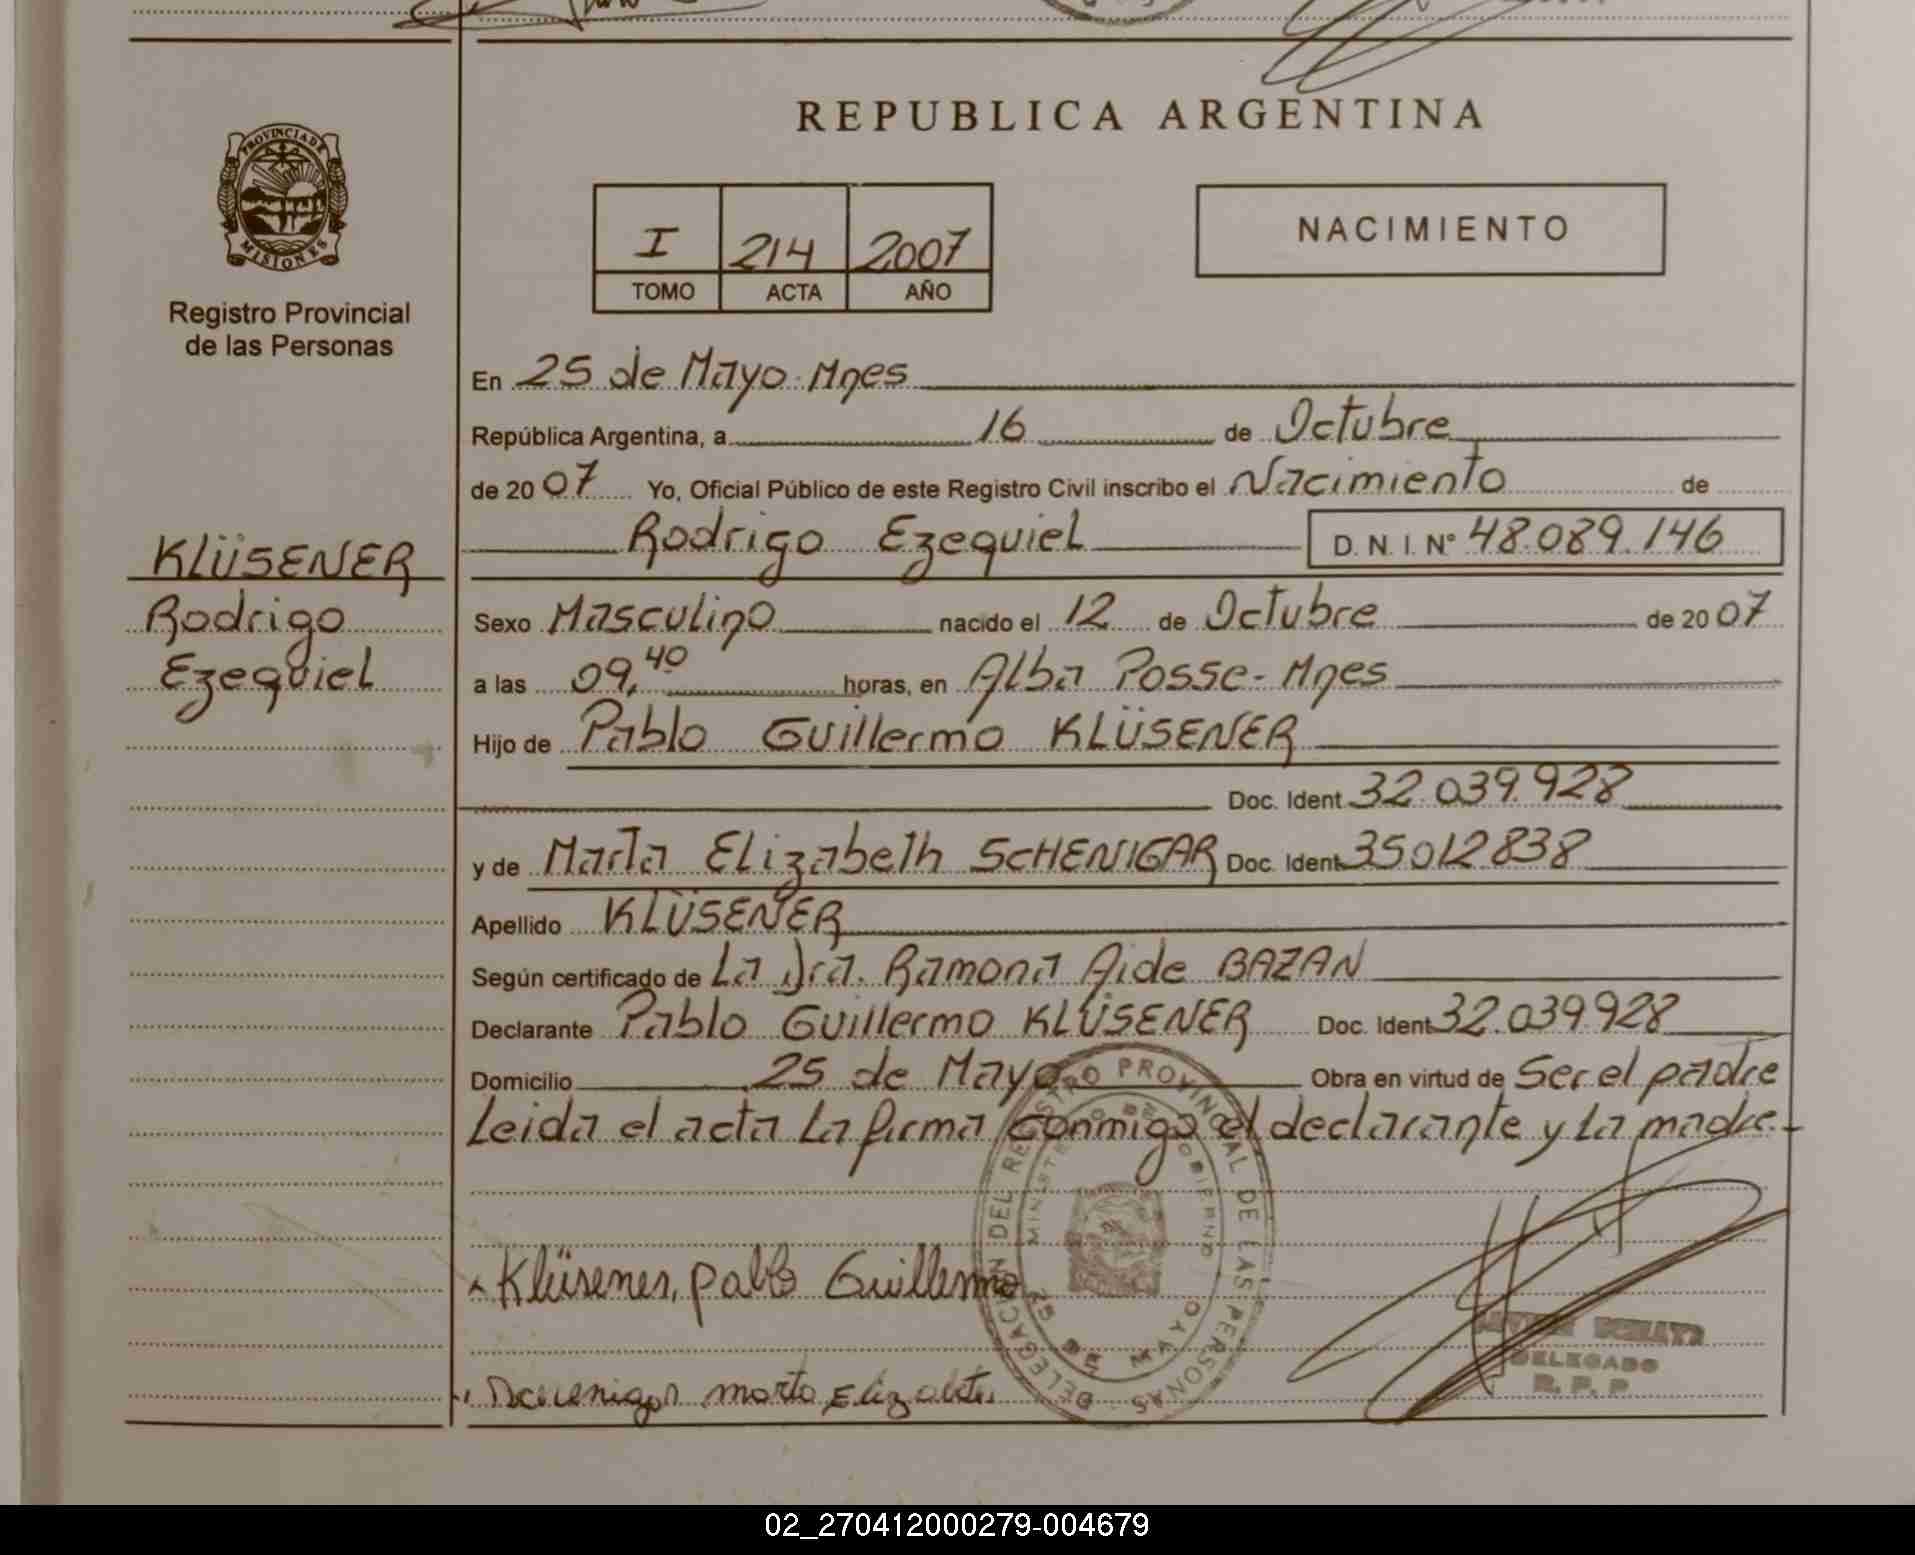 REPUBLICA ARGENTINA
PROVINCIA DE MISIONES
Registro Provincial
de las Personas
I 214 2007
TOMO ACTA AÑO
NACIMIENTO
KLÜSENER
Rodrigo
Ezequiel
En 25 de Mayo Mnes
República Argentina, a 16 de Octubre
de 2007 Yo, Oficial Público de este Registro Civil inscribo el Nacimiento de
Rodrigo Ezequiel D. N. I. Nº 48.089.146
Sexo Masculino nacido el 12 de Octubre de 2007
a las 09,40 horas, en Alba Posse - Mnes
Hijo de Pablo Guillermo KLÜSENER
Doc. Ident 32.039.928
y de Marta Elizabeth SCHENIGAR Doc. Ident 35012838
Apellido KLÜSENER
Según certificado de La Dra. Ramona Aide BAZAN
Declarante Pablo Guillermo KLÜSENER Doc. Ident 32.039.928
Domicilio 25 de Mayo Obra en virtud de Ser el padre
Leida el acta La firma conmigo el declarante y La madre.-
DELEGACION DEL REGISTRO PROVINCIAL DE LAS PERSONAS
MINISTERIO DE GOBIERNO
25 DE MAYO
Klüsener, pablo Guillermo
marta Elizabet
DELEGADO
R. P. P
02_270412000279-004679